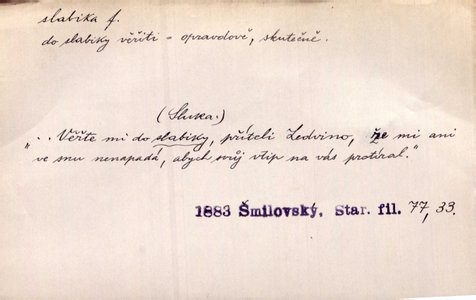 slabika f.
do slabiky věřiti - opravdově, skutečně.
(Sluka.)
"..Věřte mi do slabiky, příteli Ledvino, že mi ani
ve snu nenapadá, abych svůj vtip na vás protíral."
1883 Šmilovský, Star. fil. 77, 33.